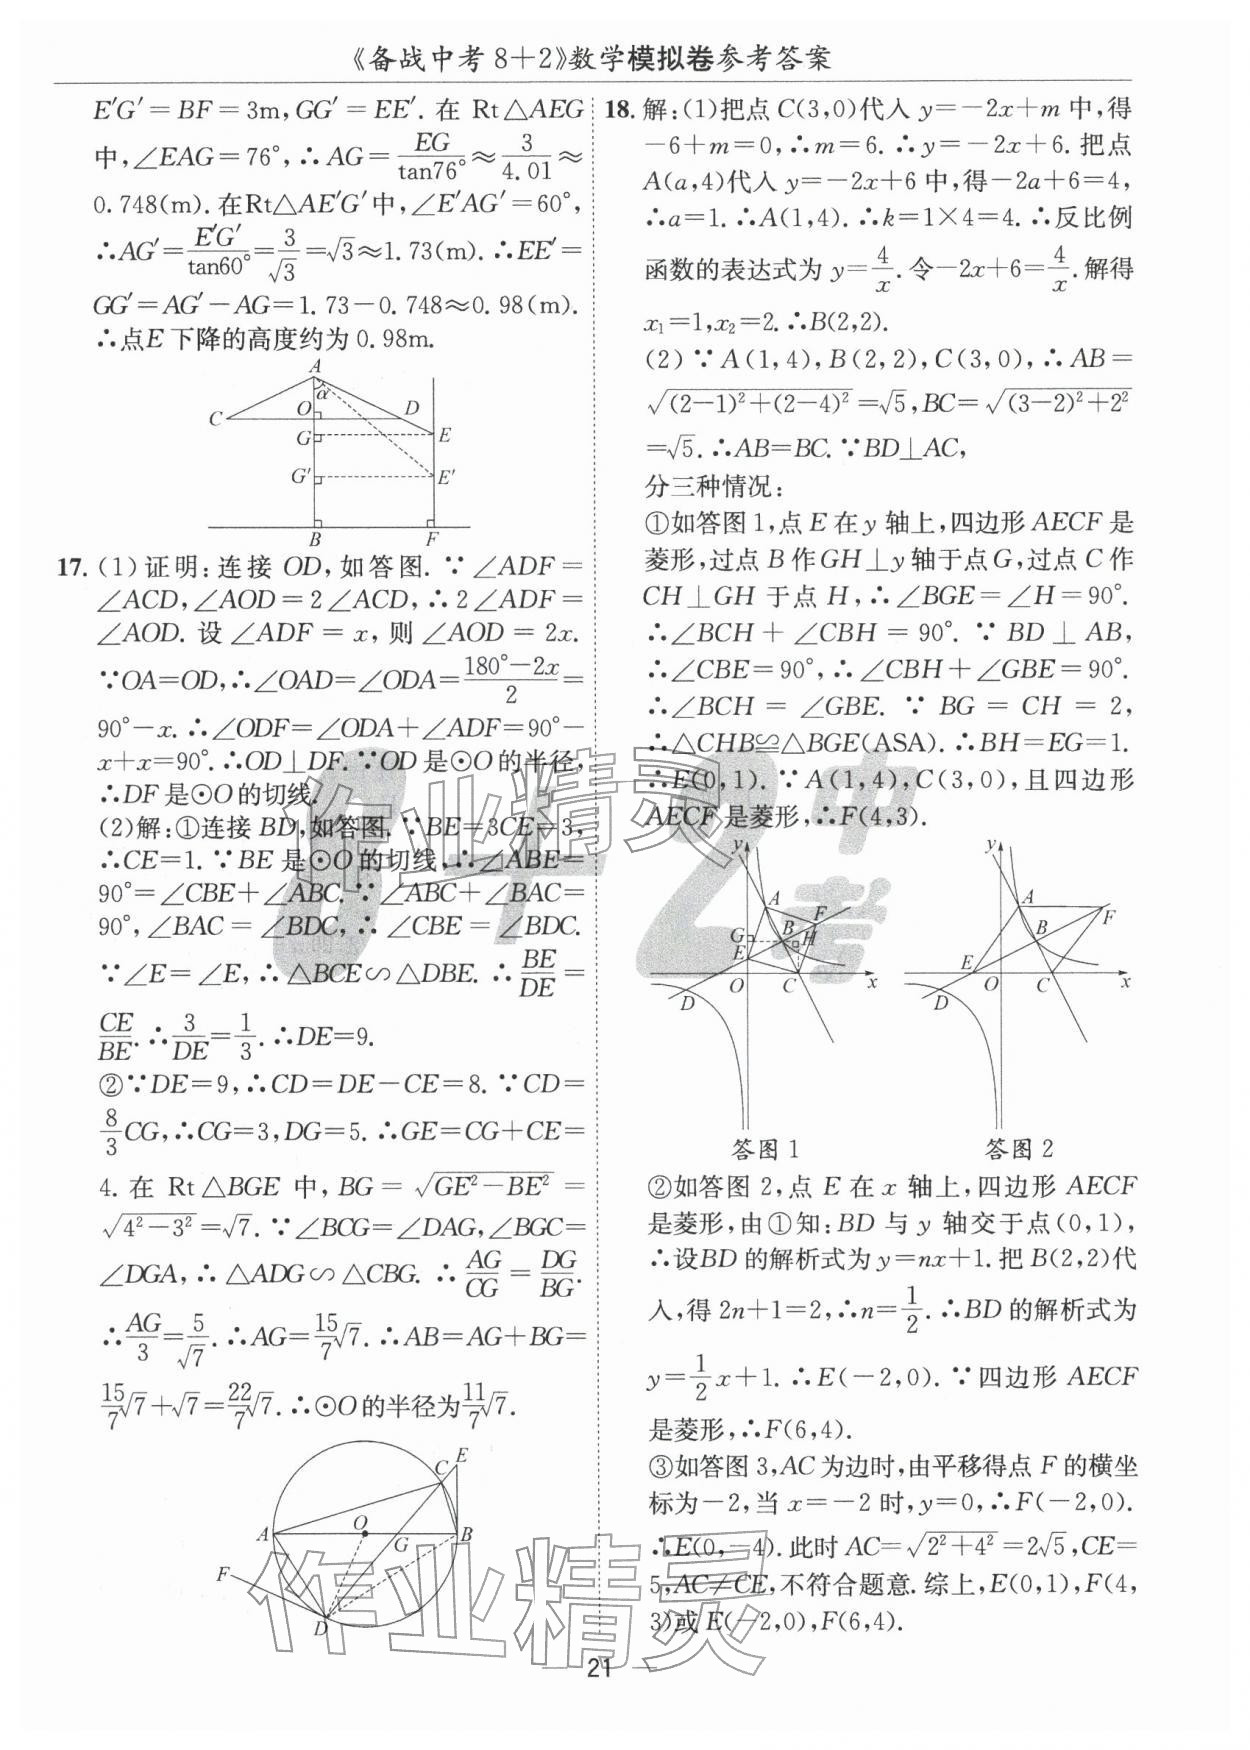 《备战中考8+2》数学模拟卷参考答案
E′G′=BF=3m,GG′=EE′. 在 Rt△AEG
中,∠EAG=76°,∴AG=EG/tan76°≈3/4.01≈
0.748(m). 在Rt△AE′G′中,∠E′AG′=60°,
∴AG′=E′G′/tan60°=3/√3=√3≈1.73(m). ∴EE′=
GG′=AG′-AG=1.73-0.748≈0.98(m).
∴点E下降的高度约为0.98m.
A
α
C
O
D
G
E
G′
E′
B
F
17. (1)证明:连接 OD,如答图. ∵∠ADF=
∠ACD,∠AOD=2∠ACD,∴2∠ADF=
∠AOD. 设∠ADF=x,则∠AOD=2x.
∵OA=OD,∴∠OAD=∠ODA=(180°-2x)/2=
90°-x. ∴∠ODF=∠ODA+∠ADF=90°-
x+x=90°. ∴OD⊥DF. ∵OD是⊙O的半径,
∴DF是⊙O的切线.
(2)解:①连接BD,如答图. ∵BE=3CE=3,
∴CE=1. ∵BE是⊙O的切线,∴∠ABE=
90°=∠CBE+∠ABC. ∵∠ABC+∠BAC=
90°,∠BAC=∠BDC,∴∠CBE=∠BDC.
∵∠E=∠E,∴△BCE∽△DBE. ∴BE/DE=
CE/BE. ∴3/DE=1/3. ∴DE=9.
②∵DE=9,∴CD=DE-CE=8. ∵CD=
8/3CG,∴CG=3,DG=5. ∴GE=CG+CE=
4. 在 Rt△BGE 中,BG=√(GE²-BE²)=
√(4²-3²)=√7. ∵∠BCG=∠DAG,∠BGC=
∠DGA,∴△ADG∽△CBG. ∴AG/CG=DG/BG.
∴AG/3=5/√7. ∴AG=15/7√7. ∴AB=AG+BG=
15/7√7+√7=22/7√7. ∴⊙O的半径为11/7√7.
E
C
A
O
G
B
F
D
18. 解:(1)把点C(3,0)代入y=-2x+m中,得
-6+m=0,∴m=6. ∴y=-2x+6. 把点
A(a,4)代入y=-2x+6中,得-2a+6=4,
∴a=1. ∴A(1,4). ∴k=1×4=4. ∴反比例
函数的表达式为y=4/x. 令-2x+6=4/x. 解得
x₁=1,x₂=2. ∴B(2,2).
(2)∵A(1,4),B(2,2),C(3,0),∴AB=
√((2-1)²+(2-4)²)=√5,BC=√((3-2)²+2²)
=√5. ∴AB=BC. ∵BD⊥AC,
分三种情况:
①如答图1,点E在y轴上,四边形AECF是
菱形,过点B作GH⊥y轴于点G,过点C作
CH⊥GH于点H,∴∠BGE=∠H=90°.
∴∠BCH+∠CBH=90°. ∵BD⊥AB,
∴∠CBE=90°,∴∠CBH+∠GBE=90°.
∴∠BCH=∠GBE. ∵BG=CH=2,
∴△CHB≌△BGE(ASA). ∴BH=EG=1.
∴E(0,1). ∵A(1,4),C(3,0),且四边形
AECF是菱形,∴F(4,3).
y
A
F
G
B
H
E
O
C
x
D
答图1
y
A
F
B
E
O
C
x
D
答图2
②如答图2,点E在x轴上,四边形AECF
是菱形,由①知:BD与y轴交于点(0,1),
∴设BD的解析式为y=nx+1. 把B(2,2)代
入,得2n+1=2,∴n=1/2. ∴BD的解析式为
y=1/2x+1. ∴E(-2,0). ∵四边形AECF
是菱形,∴F(6,4).
③如答图3,AC为边时,由平移得点F的横坐
标为-2,当x=-2时,y=0,∴F(-2,0).
∴E(0,-4). 此时AC=√(2²+4²)=2√5,CE=
5,AC≠CE,不符合题意. 综上,E(0,1),F(4,
3)或E(-2,0),F(6,4).
21
8+2中考
作业精灵
作业精灵